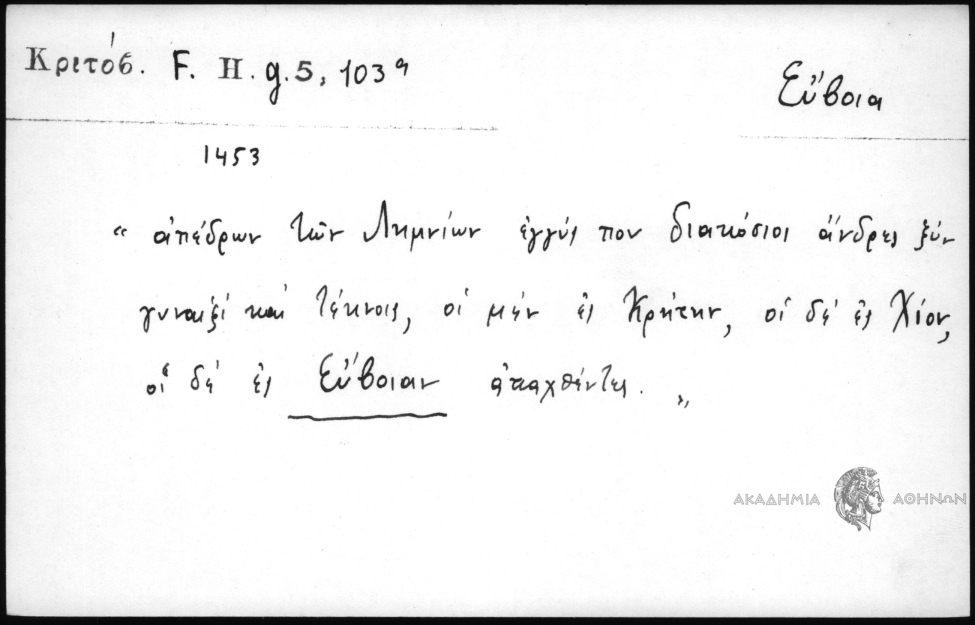 Κριτόβ. F. H. g. 5, 103ᵃ
Εὔβοια
1453
“ ἀπέδρων τῶν Λημνίων ἐγγύς που διακόσιοι ἄνδρες ξύν
γυναιξί καί τέκνοις, οἱ μέν ἐς Κρήτην, οἱ δέ ἐς Χίον,
οἱ δέ ἐς Εὔβοιαν ἀπαχθέντες. ”
ΑΚΑΔΗΜΙΑ ΑΘΗΝΩΝ